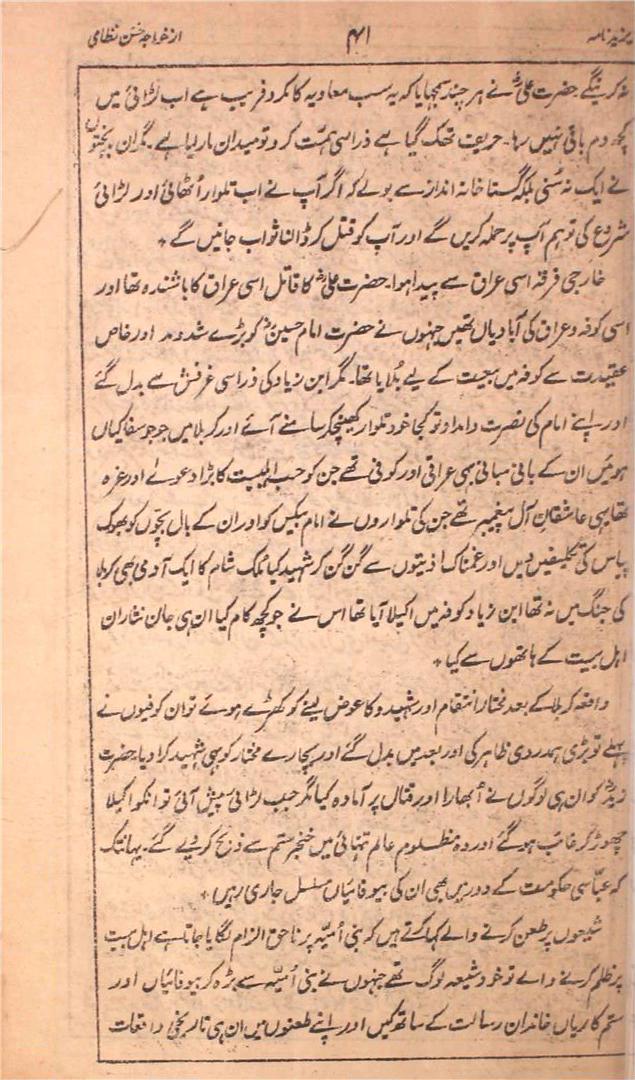 یزید نامہ ۴۱ از خواجہ حسن نظامی
نہ کرینگے۔ حضرت علیؓ نے ہر چند سمجہایا کہ یہ سب معاویہ کا مکر و فریب ہے اب لڑائی میں
کچھ دم باقی نہیں رہا۔ حریف تھک گیا ہے ذرا سی ہمت کرو تو میدان مار لیا ہے۔ مگر ان بدبختوں
نے ایک نہ سُنی بلکہ گستاخانہ انداز سے بولے کہ اگر آپ نے اب تلوار اُٹھائی اور لڑائی
شروع کی تو ہم آپ پر حملہ کریں گے اور آپ کو قتل کر ڈالنا ثواب جانیں گے ۔
خارجی فرقہ اسی عراق سے پیدا ہوا۔ حضرت علیؓ کا قاتل اسی عراق کا باشندہ تھا اور
اسی کوفہ و عراق کی آبادیاں تھیں جنہوں نے حضرت امام حسینؓ کو بڑے شد و مد اور خاص
عقیدت سے کوفہ میں بیعت کے لیے بُلایا تھا۔ مگر ابن زیاد کی ذرا سی غرفش سے بدل گئے
اور اپنے امام کی نصرت و امداد تو کجا خود تلوار کھینچکر سامنے آئے اور کربلا میں جو جو سفاکیاں
ہوئیں ان کے بانی مبانی بہی عراقی اور کوفی تھے جن کو حب اہلبیت کا بڑا دعوےٰ اور غرہ
تھا یہی عاشقان آل پیغمبر تھے جن کی تلواروں نے امام بیکس کو اور ان کے بال بچّوں کو بھوک
پیاس کی تکلیفیں دیں اور غمناک اذیتوں سے گن گن کر شہید کیا مُلک شام کا ایک آدمی بھی کربلا
کی جنگ میں نہ تھا ابن زیاد کوفہ میں اکیلا آیا تھا اس نے جو کچھ کام کیا ان ہی جان نثاران
اہل بیت کے ہاتھوں سے کیا ۔
واقعہ کربلا کے بعد مختار انتقام اور شہیدو کا عوض لینے کو کھڑے ہوئے تو ان کوفیوں نے
پہلے تو بڑی ہمدردی ظاہر کی اور بعد میں بدل گئے اور بیچارے مختار کو بہی شہید کرا دیا۔ حضرت
زیدؓ کو ان ہی لوگوں نے اُبھارا اور قتال پر آمادہ کیا مگر جب لڑائی پیش آئی تو انکو اکیلا
چھوڑ کر غائب ہو گئے اور وہ مظلوم عالم تنہائی میں خنجر ستم سے ذبح کر دیے گئے۔ یہانتک
کہ عباسی حکومت کے دور میں بھی ان کی بیوفائیاں مسلسل جاری رہیں ۔
شیعوں پر طعن کرنے والے کہا کرتے ہیں کہ بنی اُمیّہ پر ناحق الزام لگایا جاتا ہے اہل بیت
پر ظلم کرنے والے تو خود شیعہ لوگ تھے جنہوں نے بنی اُمیّہ سے بڑہ کر بیوفائیاں اور
ستم گاریاں خاندان رسالت کے ساتھ کیں اور اپنے طعنوں میں ان ہی تاریخی واقعات